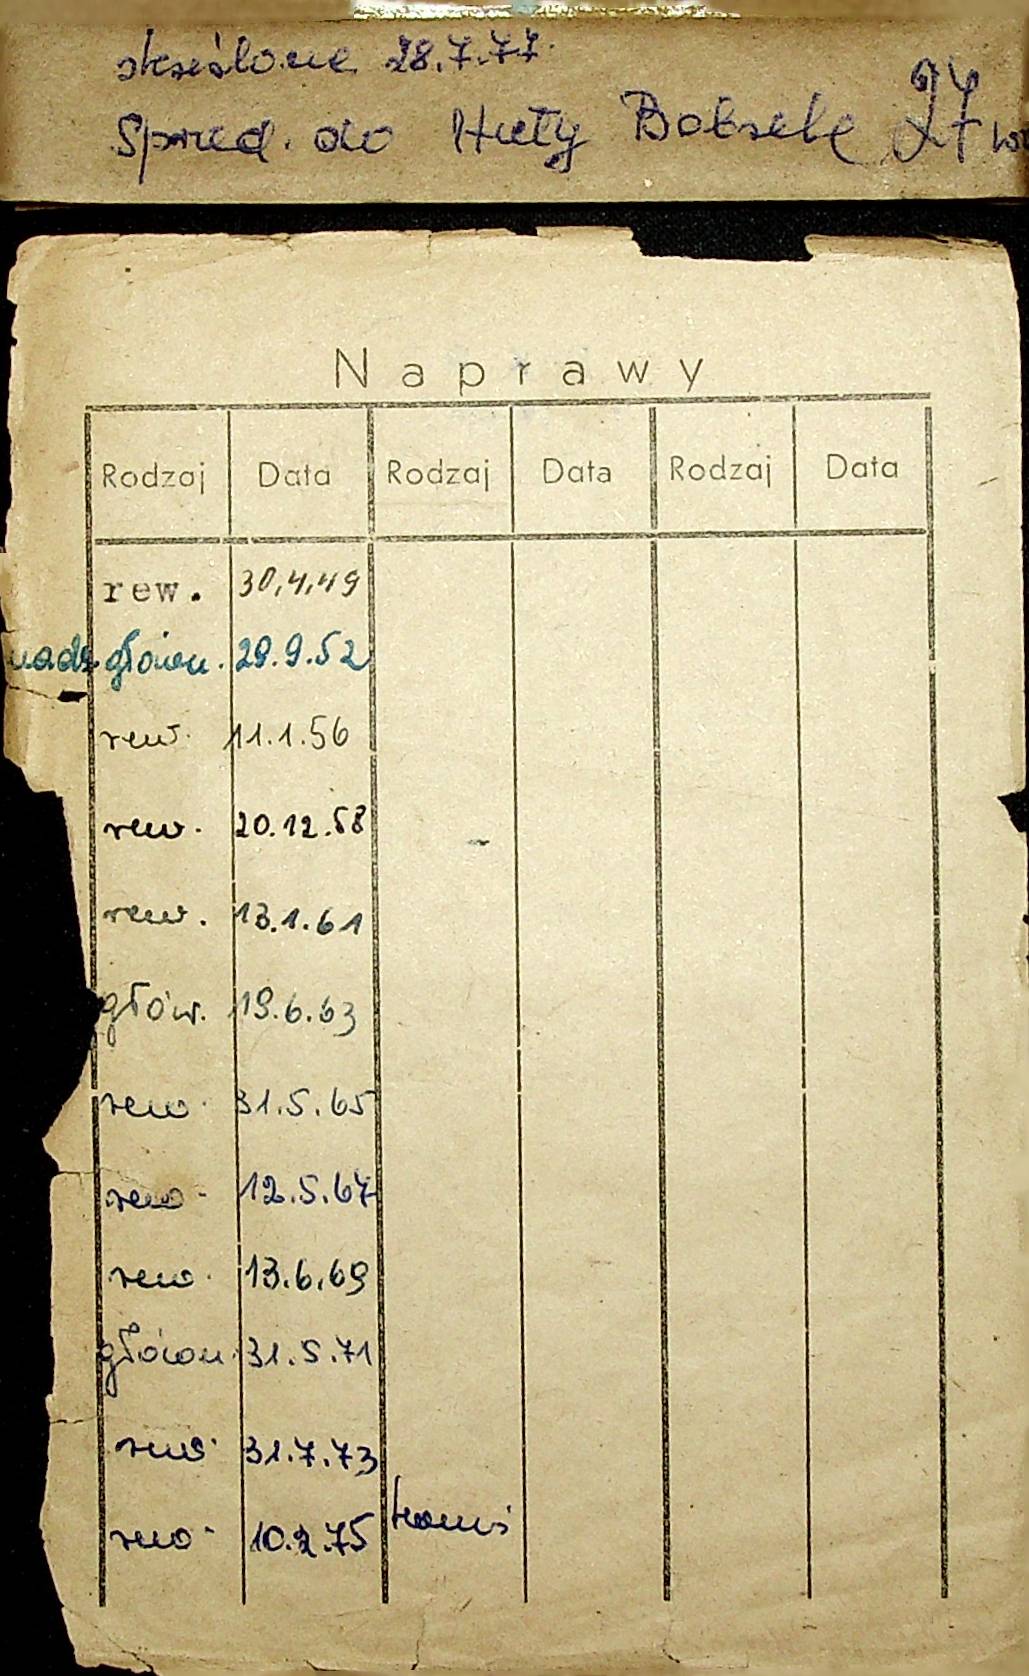 skreślone 28.7.77.
Sprzed. do Huty Bobrek
Naprawy
Rodzaj Data Rodzaj Data Rodzaj Data
rew. 30.4.49
nadz. główn. 29.9.52
rew. 11.1.56
rew. 20.12.58
rew. 13.1.61
głów. 19.6.63
rew. 31.5.65
rew. 12.5.67
rew. 13.6.69
główn. 31.5.71
rew. 31.7.73
rew. 10.2.75